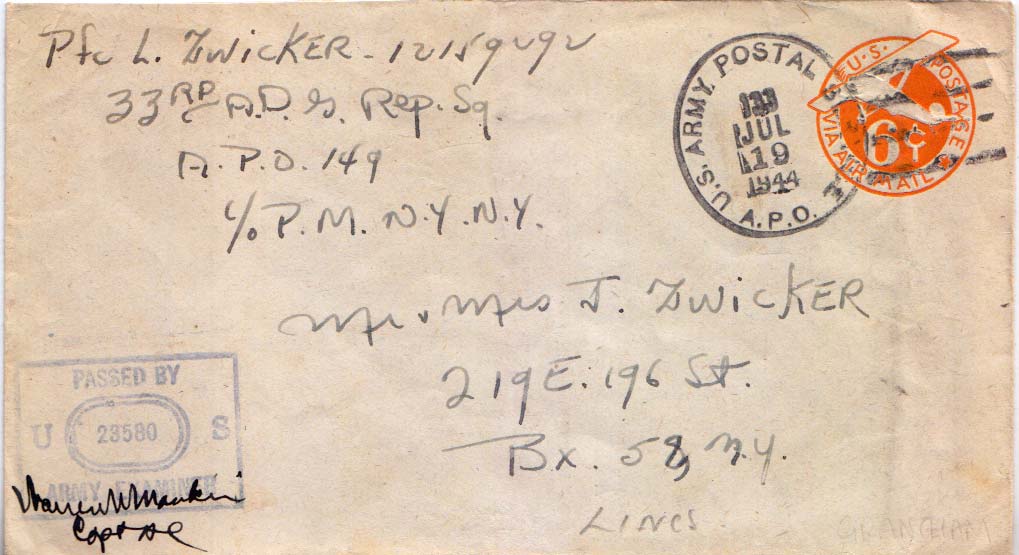 Pfc L. ZWICKER - 12159292
33RD A.D.G. Rep. Sq.
A.P.O. 149
c/o P.M. N.Y. N.Y.
U.S. ARMY POSTAL
A.P.O.
133
JUL
19
1944
U.S. POSTAGE
6¢
VIA AIR MAIL
Mr + Mrs J. ZWICKER
219 E. 196 St.
Bx. 58, N.Y.
PASSED BY
U 23580 S
ARMY EXAMINER
Capt AC
LINCS